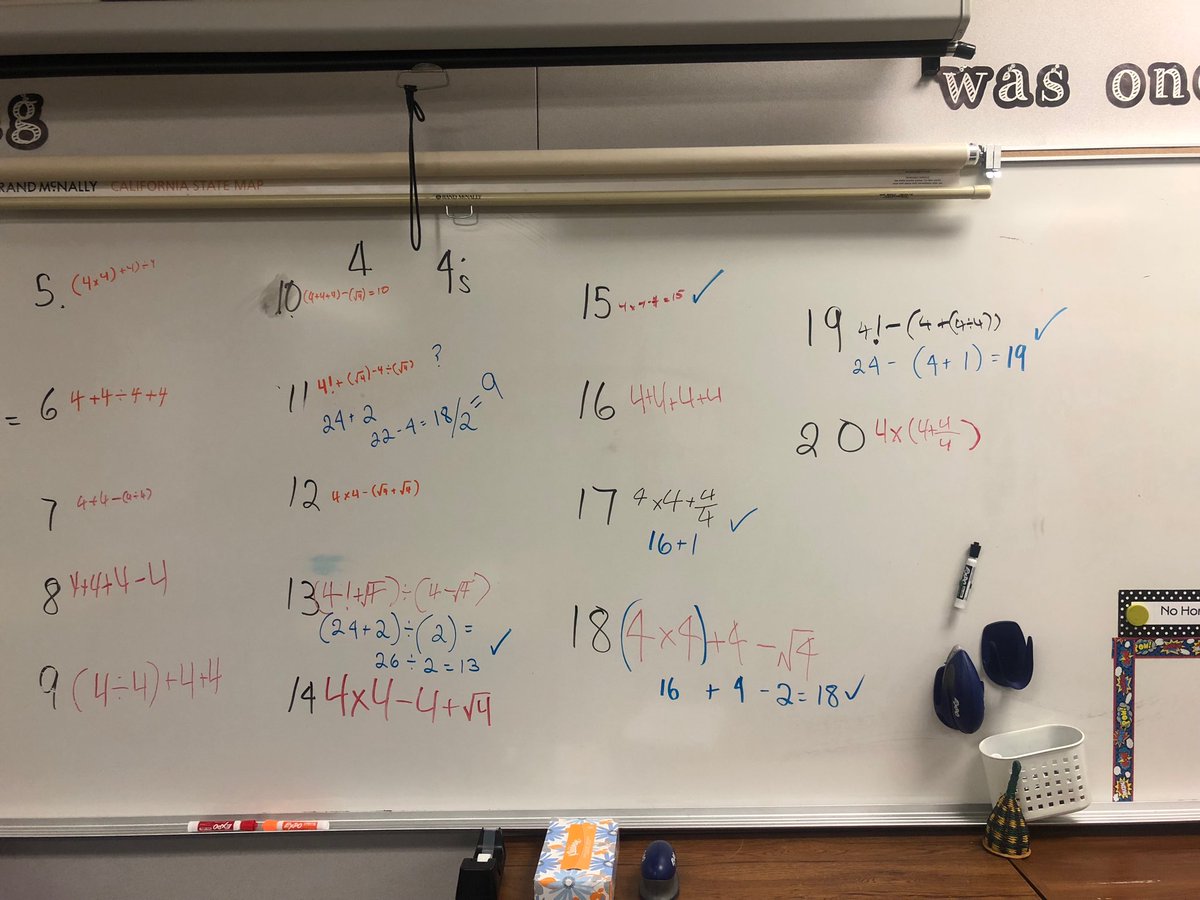 was one
RAND McNALLY CALIFORNIA STATE MAP
RAND McNALLY
4 4's
5. (4×4)+4)÷4
= 6 4+4÷4+4
7 4+4-(4÷4)
8 4+4+4-4
9 (4÷4)+4+4
10 (4+4+4)-(√4)=10
11 4!+(√4)-4÷(√4) ?
24+2
22-4=18/2=9
12 4×4-(√4+√4)
13 (4!+√4)÷(4-√4)
(24+2)÷(2)=
26÷2=13 ✓
14 4×4-4+√4
15 ✓
16 4+4+4+4
17 4×4+4/4
16+1 ✓
18 (4×4)+4-√4
16+4-2=18 ✓
19 4!-(4+(4÷4))
24-(4+1)=19 ✓
20 4×(4+4/4)
No Ho
EXPO
EXPO
EXPO
EXPO